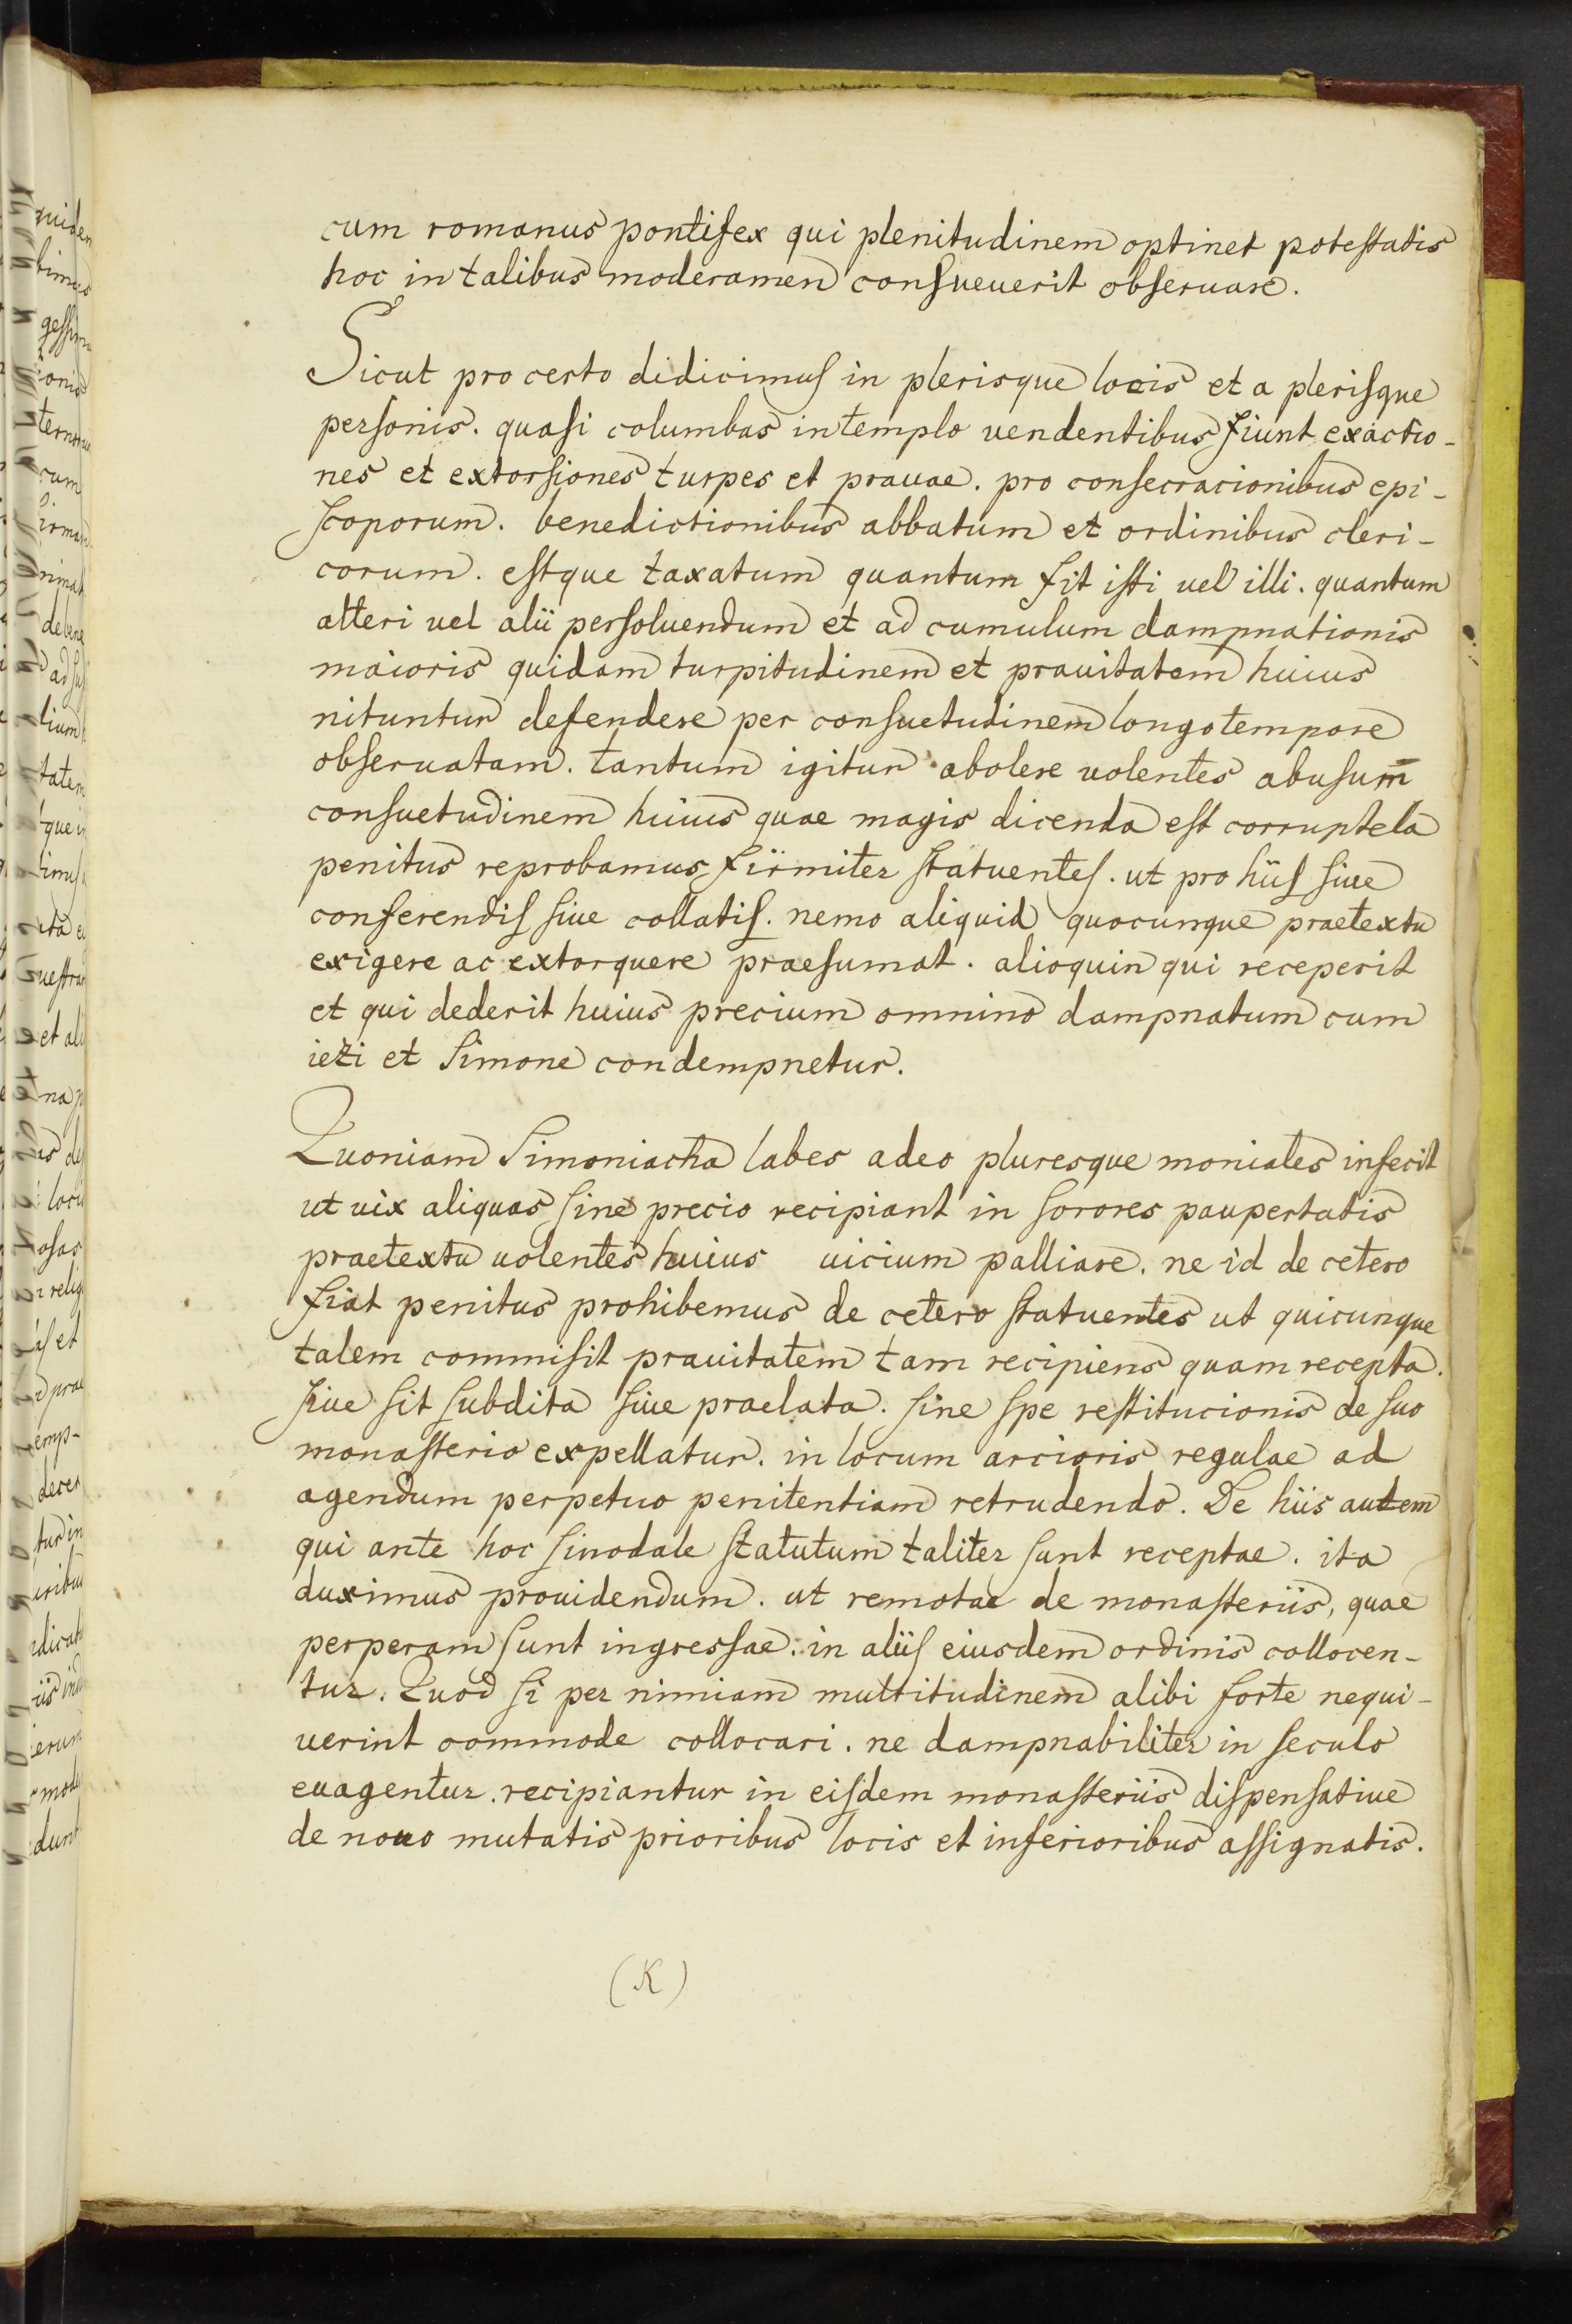 cum romanus pontifex qui plenitudinem optinet potestatis
hoc in talibus moderamen consueuerit obseruare.
Sicut pro certo didicimus in plerisque locis et a plerisque
personis. quasi columbas in templo uendentibus fiunt exactio-
nes et extorsiones turpes et prauae. pro consecracionibus epi-
scoporum. benedictionibus abbatum et ordinibus cleri-
corum. estque taxatum quantum sit isti uel illi. quantum
alteri uel alii persoluendum et ad cumulum dampnationis
maioris quidam turpitudinem et prauitatem huius
nituntur defendere per consuetudinem longo tempore
obseruatam. tantum igitur abolere uolentes abusum̄
consuetudinem huius quae magis dicenda est corruptela
penitus reprobamus firmiter statuentes. ut pro hiis siue
conferendis siue collatis. nemo aliquid quocunque praetextu
exigere ac extorquere praesumat. alioquin qui receperit
et qui dederit huius precium omnino dampnatum cum
iezi et Simone condempnetur.
Quoniam Simoniacha labes adeo pluresque moniales infecit
ut uix aliquas sine precio recipiant in sorores paupertatis
praetextu uolentes huius uicium palliare. ne id de cetero
fiat penitus prohibemus de cetero statuentes ut quicunque
talem commisit prauitatem tam recipiens quam recepta.
siue sit subdita siue praelata. sine spe restitucionis de suo
monasterio expellatur. in locum arcioris regulae ad
agendum perpetuo penitentiam retrudendo. De hiis autem
qui ante hoc sinodale statutum taliter sunt receptae. ita
duximus prouidendum. ut remotae de monasteriis, quae
perperam sunt ingressae. in aliis eiusdem ordinis collocen-
tur. Quod si per nimiam multitudinem alibi forte nequi-
uerint commode collocari. ne dampnabiliter in seculo
euagentur. recipiantur in eisdem monasteriis dispensatiue
de nouo mutatis prioribus locis et inferioribus assignatis.
(K)